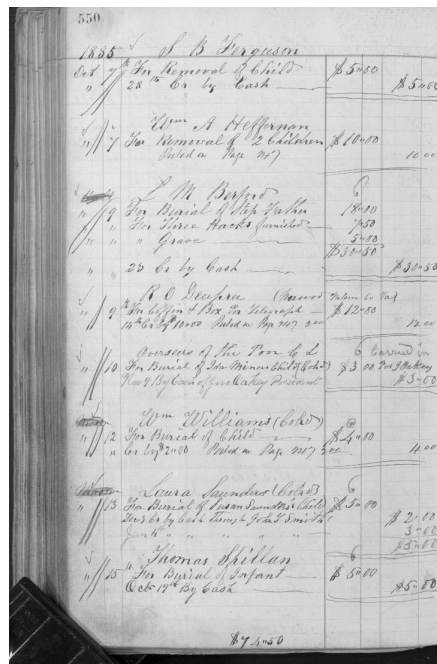 550
1885 S B Ferguson
Oct 7th For Removal of Child $5"00
" 28th Cr by Cash $5"00
Wm A Heffernan
" 7 For Removal of 2 Children $10"00
Posted on Page 10 00
L M Berford
" 9 For Burial of Step Father 18"00
" " For Three Hacks furnished 7"50
" " " Grave 5"00
$30"50
" 23 Cr by Cash $30"50
R O
" 9th For Coffin & Box Per Telegraph $12"00
14th Cr by 10"00 Posted on Page 12 00
Overseers of the Poor C L
" 10 For Burial of Ida Minor Child (Cold) $3 00
Nov 9 By Cash of Jno Oakey President $3"00
Wm Williams (Cold)
" 12 For Burial of Child $4"00
" Cr by 2"00 Posted on Page 4 00
Laura Saunders (Cold)
" 13 For Burial of Susan Saunders Child $5"00
Cr by Cash Through John T. Smith $2"00
" " " " 3"00
$5"00
Thomas Spillan
" 15 For Burial of Infant $5"00
Oct 19th By Cash $5"00
$74"50